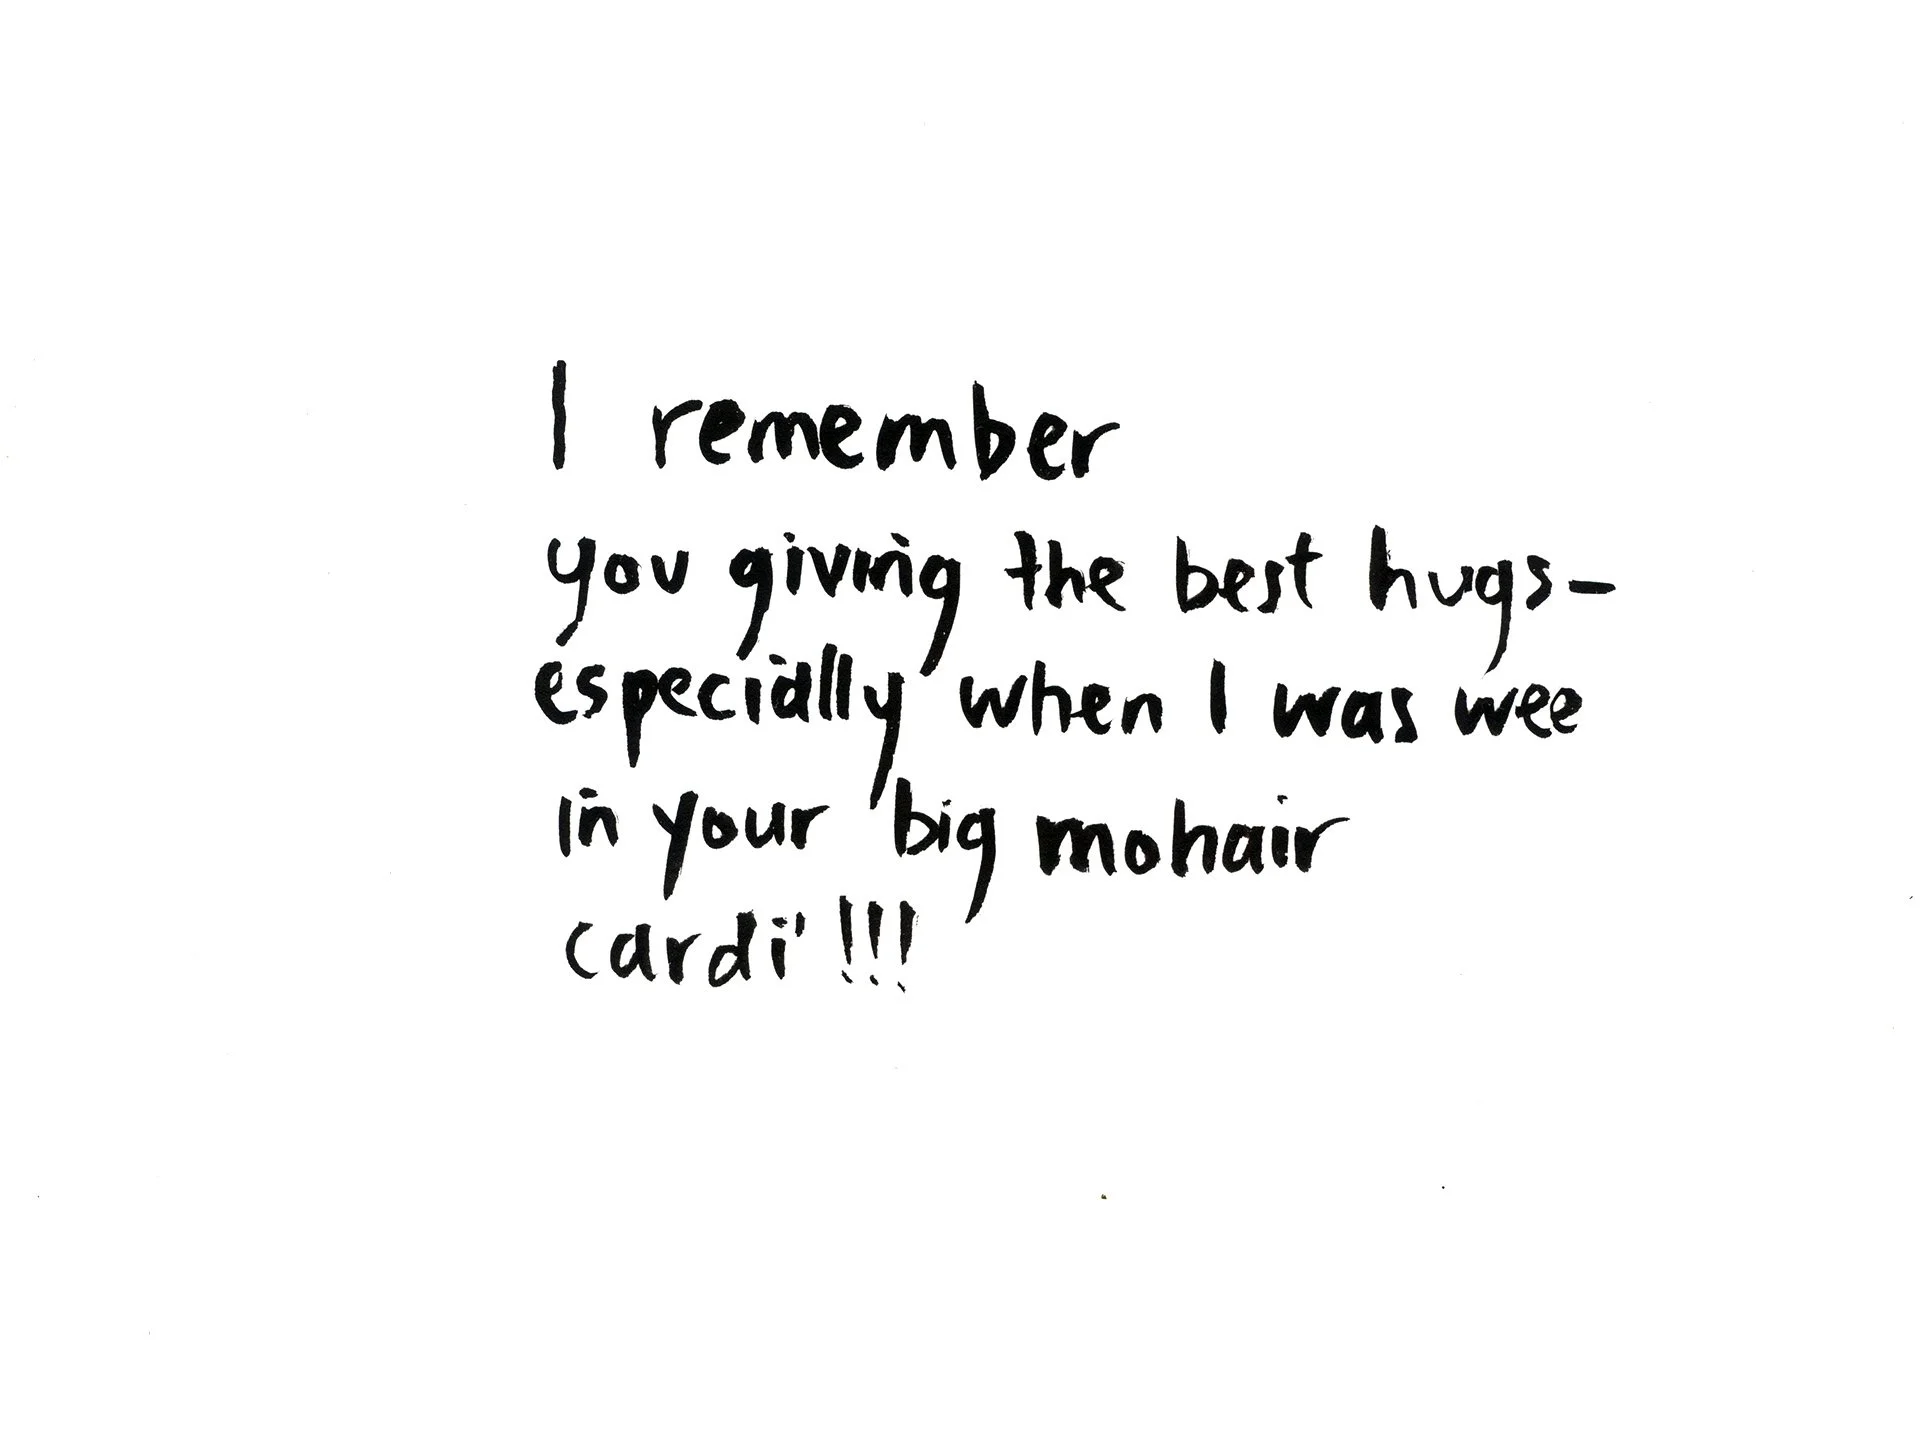 I remember
you giving the best hugs-
especially when I was wee
in your big mohair
cardi' !!!